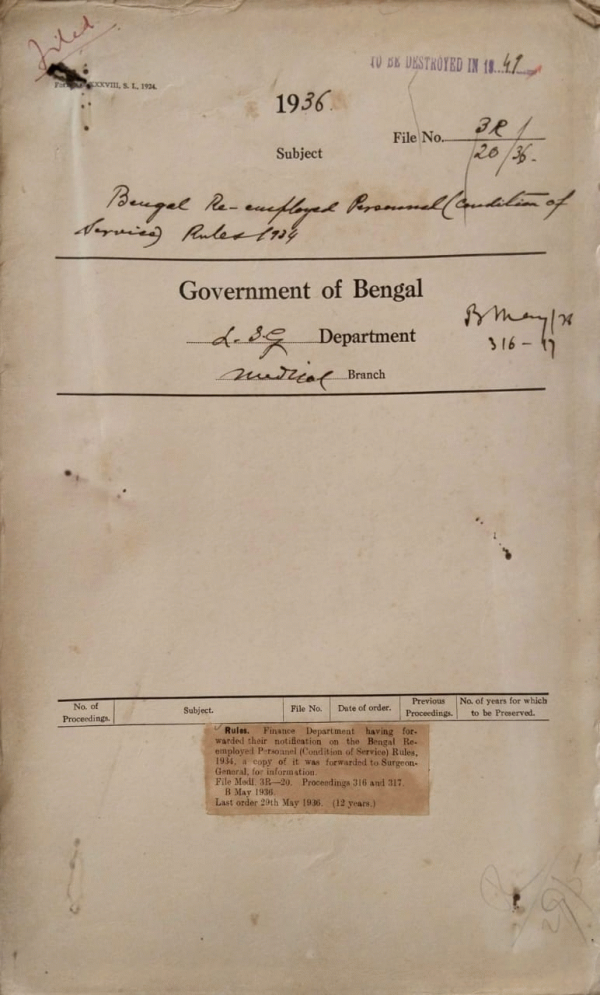 Filed.
TO BE DESTROYED IN 19 49
XXXVIII, B. L., 1924.
1936
File No. 3R/
20/36.
Subject
Bengal Re-employed Personnel (Condition of
Service) Rules 1934
Government of Bengal
L.S.G Department
B May/36
316-17
Medical Branch
No. of Proceedings.
Subject.
File No.
Date of order.
Previous Proceedings.
No. of years for which to be Preserved.
Rules. Finance Department having for-
warded their notification on the Bengal Re-
employed Personnel (Condition of Service) Rules,
1934, a copy of it was forwarded to Surgeon-
General, for information.
File Medl. 3R—20. Proceedings 316 and 317.
B May 1936.
Last order 29th May 1936. (12 years.)